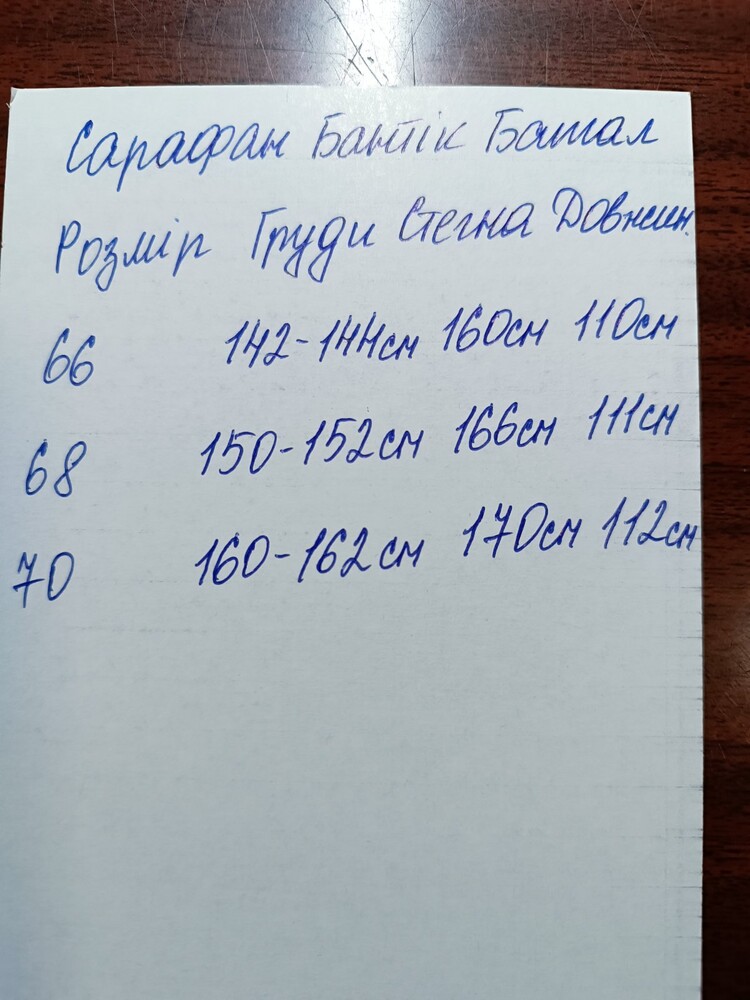 Сарафан Бантік Батал
Розмір Груди Стегна Довжин.
66 142-144см 160см 110см
68 150-152см 166см 111см
70 160-162см 170см 112см